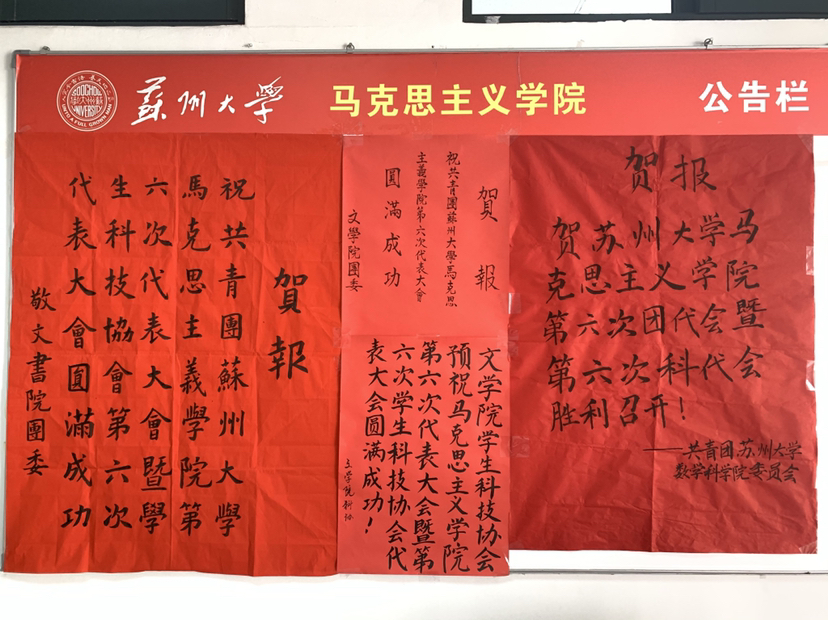 SOOCHOW
UNIVERSITY
UNTO A FULL GROWN MAN
蘇州大學
马克思主义学院
公告栏
賀報
祝共青團蘇州大學
馬克思主義學院第
六次代表大會暨學
生科技協會第六次
代表大會圓滿成功
敬文書院團委
賀報
祝共青團蘇州大學馬克思
主義學院第六次代表大會
圓滿成功
文學院團委
文学院学生科技协会
预祝马克思主义学院
第六次代表大会暨第
六次学生科技协会代
表大会圆满成功！
文学院科协
贺报
贺苏州大学马
克思主义学院
第六次团代会暨
第六次科代会
胜利召开！
——共青团苏州大学
数学科学院委员会